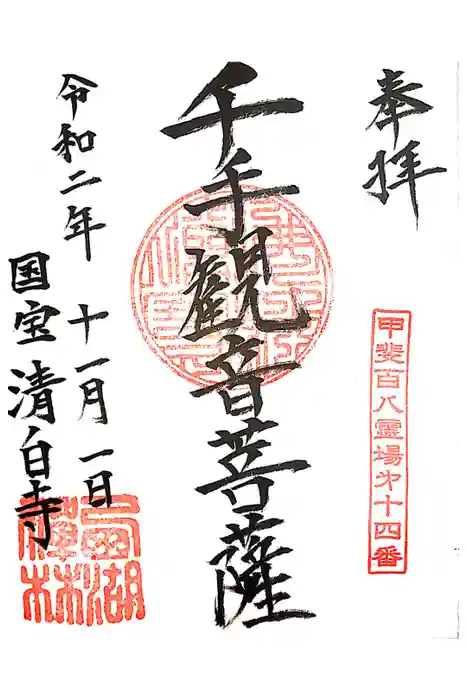 奉拝
甲斐百八霊場第十四番
千手観音菩薩
令和二年 十一月 一日
国宝 清白寺